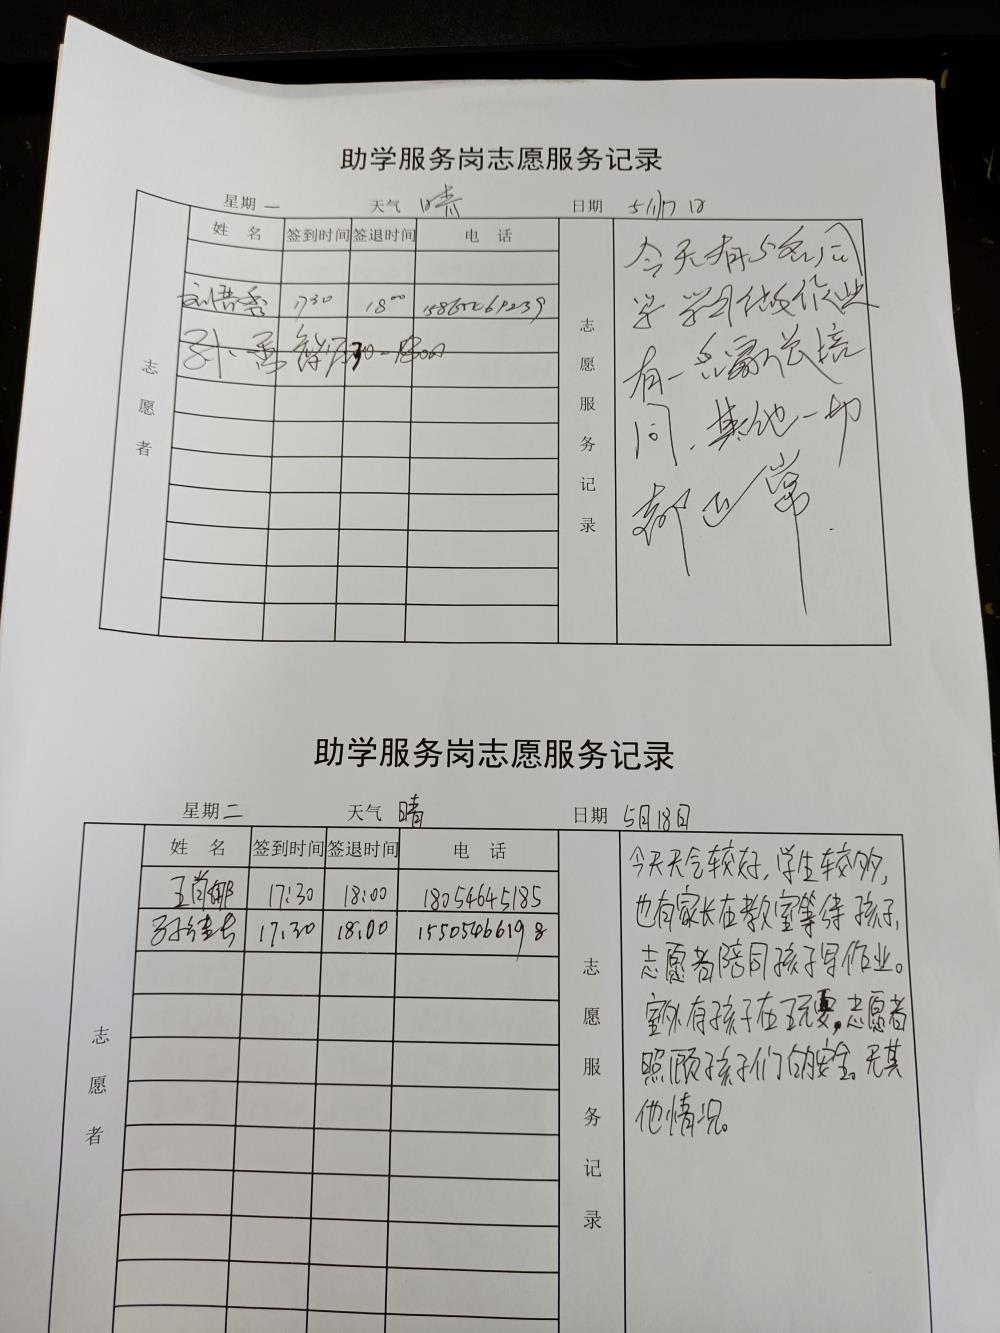 助学服务岗志愿服务记录
星期 一 天气 晴 日期 5/17日
姓 名 签到时间 签退时间 电 话
17:30 18:00
志愿者
志愿服务记录
今天有5名同
学学习做作业
有一名家长陪
同,其他一切
都正常.
助学服务岗志愿服务记录
星期二 天气 晴 日期 5月18日
姓 名 签到时间 签退时间 电 话
王肖娜 17:30 18:00 18054645185
17:30 18:00 15505466198
志愿者
志愿服务记录
今天天气较好,学生较多,
也有家长在教室等待孩子,
志愿者陪同孩子写作业。
室外有孩子在玩耍,志愿者
照顾孩子们的安全。无其
他情况。